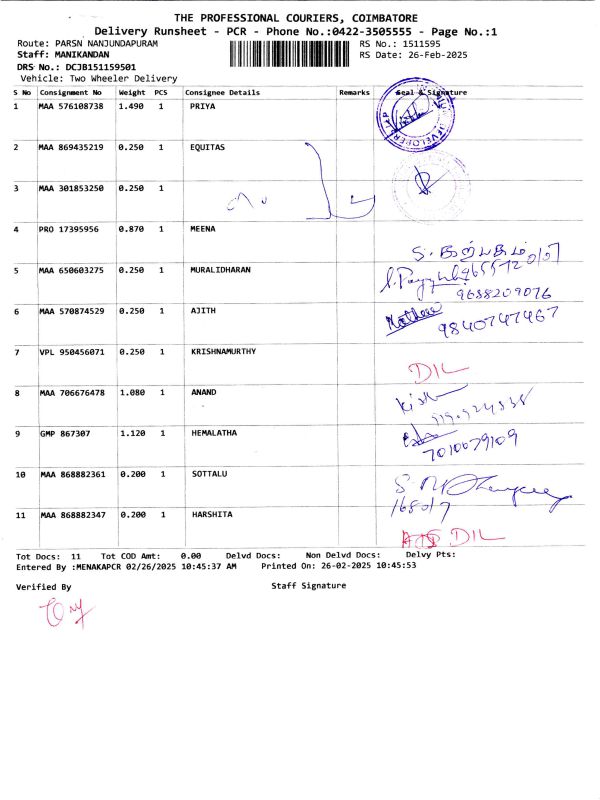 THE PROFESSIONAL COURIERS, COIMBATORE
Delivery Runsheet - PCR - Phone No.:0422-3505555 - Page No.:1
Route: PARSN NANJUNDAPURAM RS No.: 1511595
Staff: MANIKANDAN RS Date: 26-Feb-2025
DRS No.: DCJB151159501
Vehicle: Two Wheeler Delivery
S No Consignment No Weight PCS Consignee Details Remarks Seal & Signature
1 MAA 576108738 1.490 1 PRIYA
2 MAA 869435219 0.250 1 EQUITAS
3 MAA 301853250 0.250 1
4 PRO 17395956 0.870 1 MEENA
5 MAA 650603275 0.250 1 MURALIDHARAN
9688209076
6 MAA 570874529 0.250 1 AJITH
9840747467
7 VPL 950456071 0.250 1 KRISHNAMURTHY
DIL
8 MAA 706676478 1.080 1 ANAND
9 GMP 867307 1.120 1 HEMALATHA
7010079109
10 MAA 868882361 0.200 1 SOTTALU
11 MAA 868882347 0.200 1 HARSHITA
DIL
Tot Docs: 11 Tot COD Amt: 0.00 Delvd Docs: Non Delvd Docs: Delvy Pts:
Entered By :MENAKAPCR 02/26/2025 10:45:37 AM Printed On: 26-02-2025 10:45:53
Verified By Staff Signature